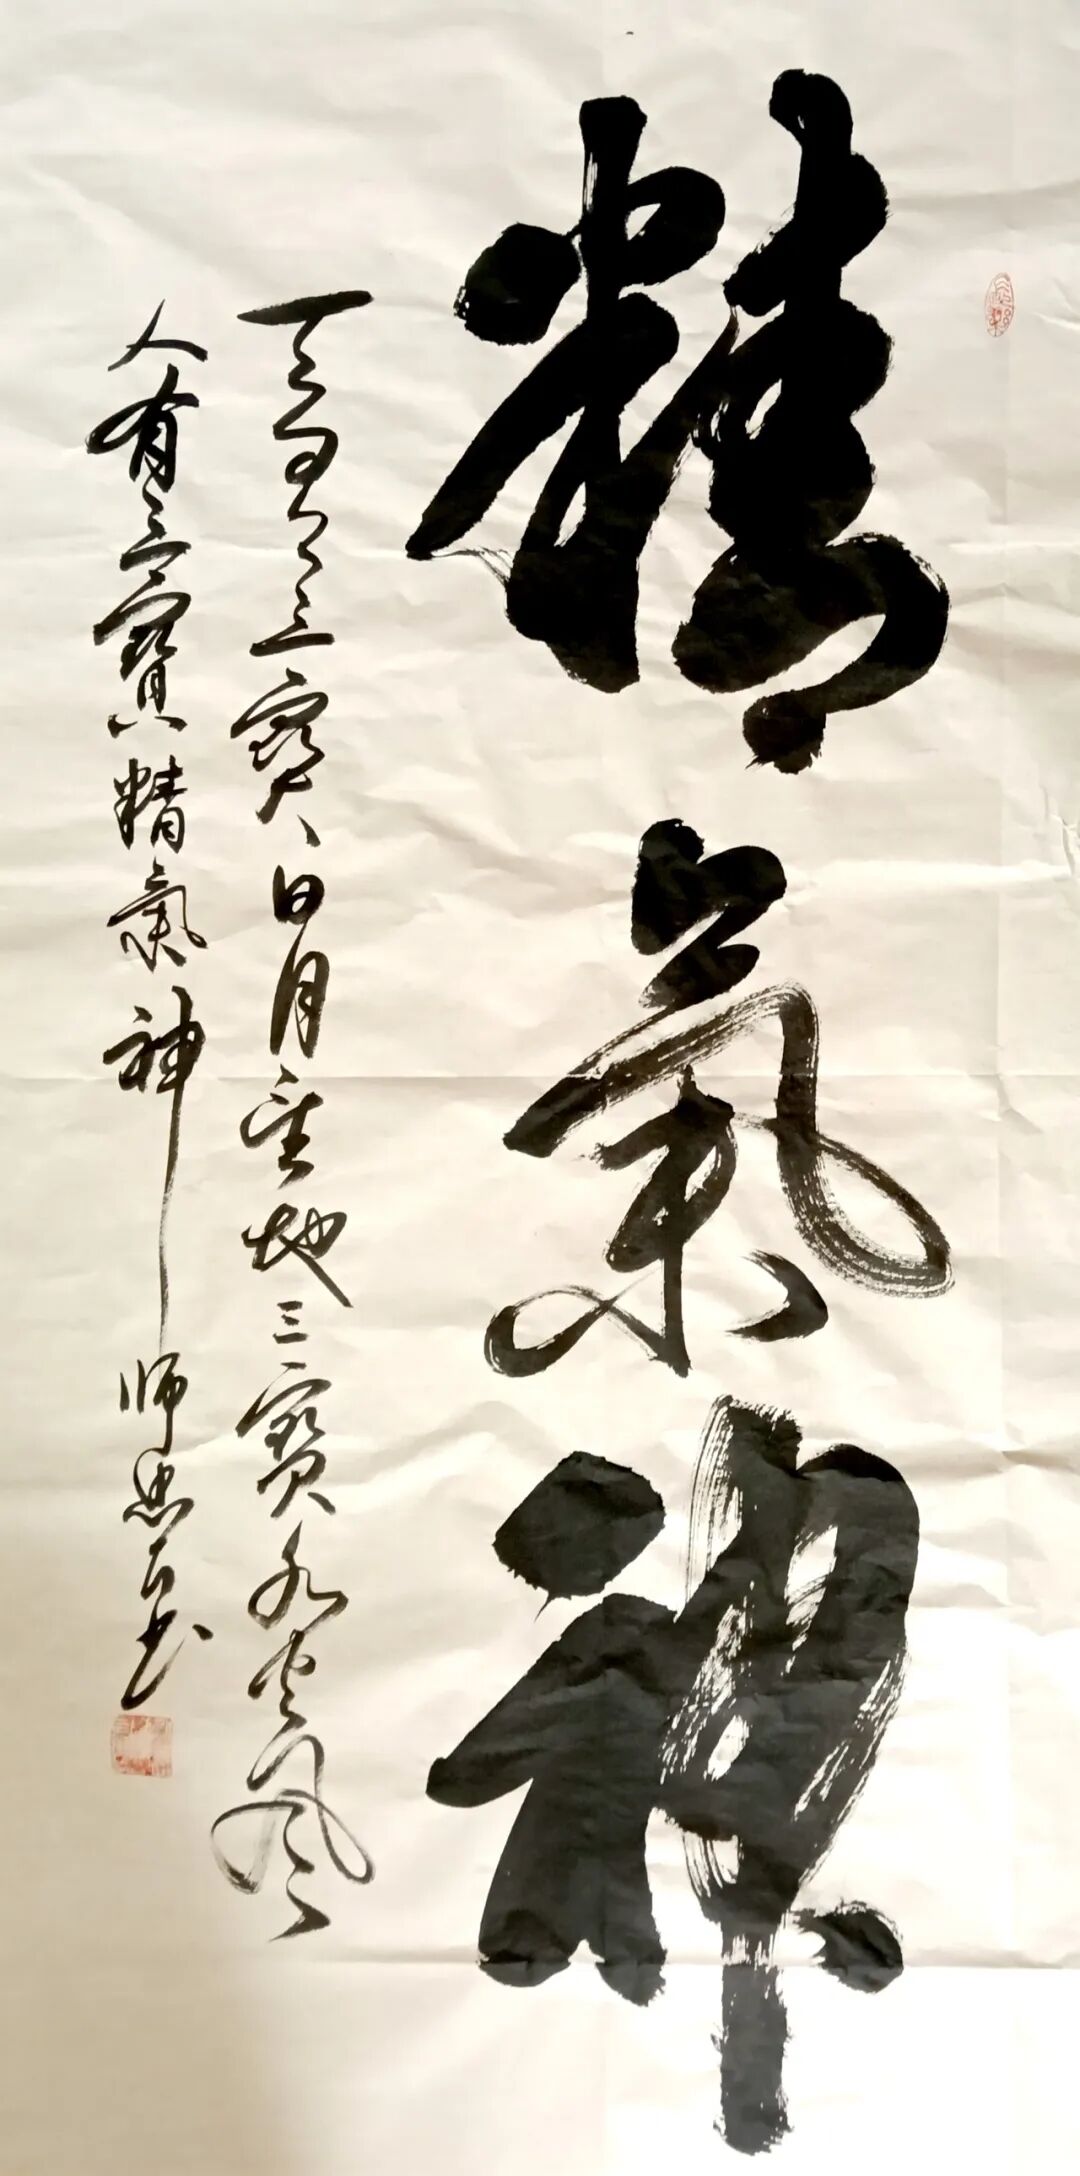 精氣神
天有三寶日月星地三寶水火風
人有三寶精氣神 师忠书